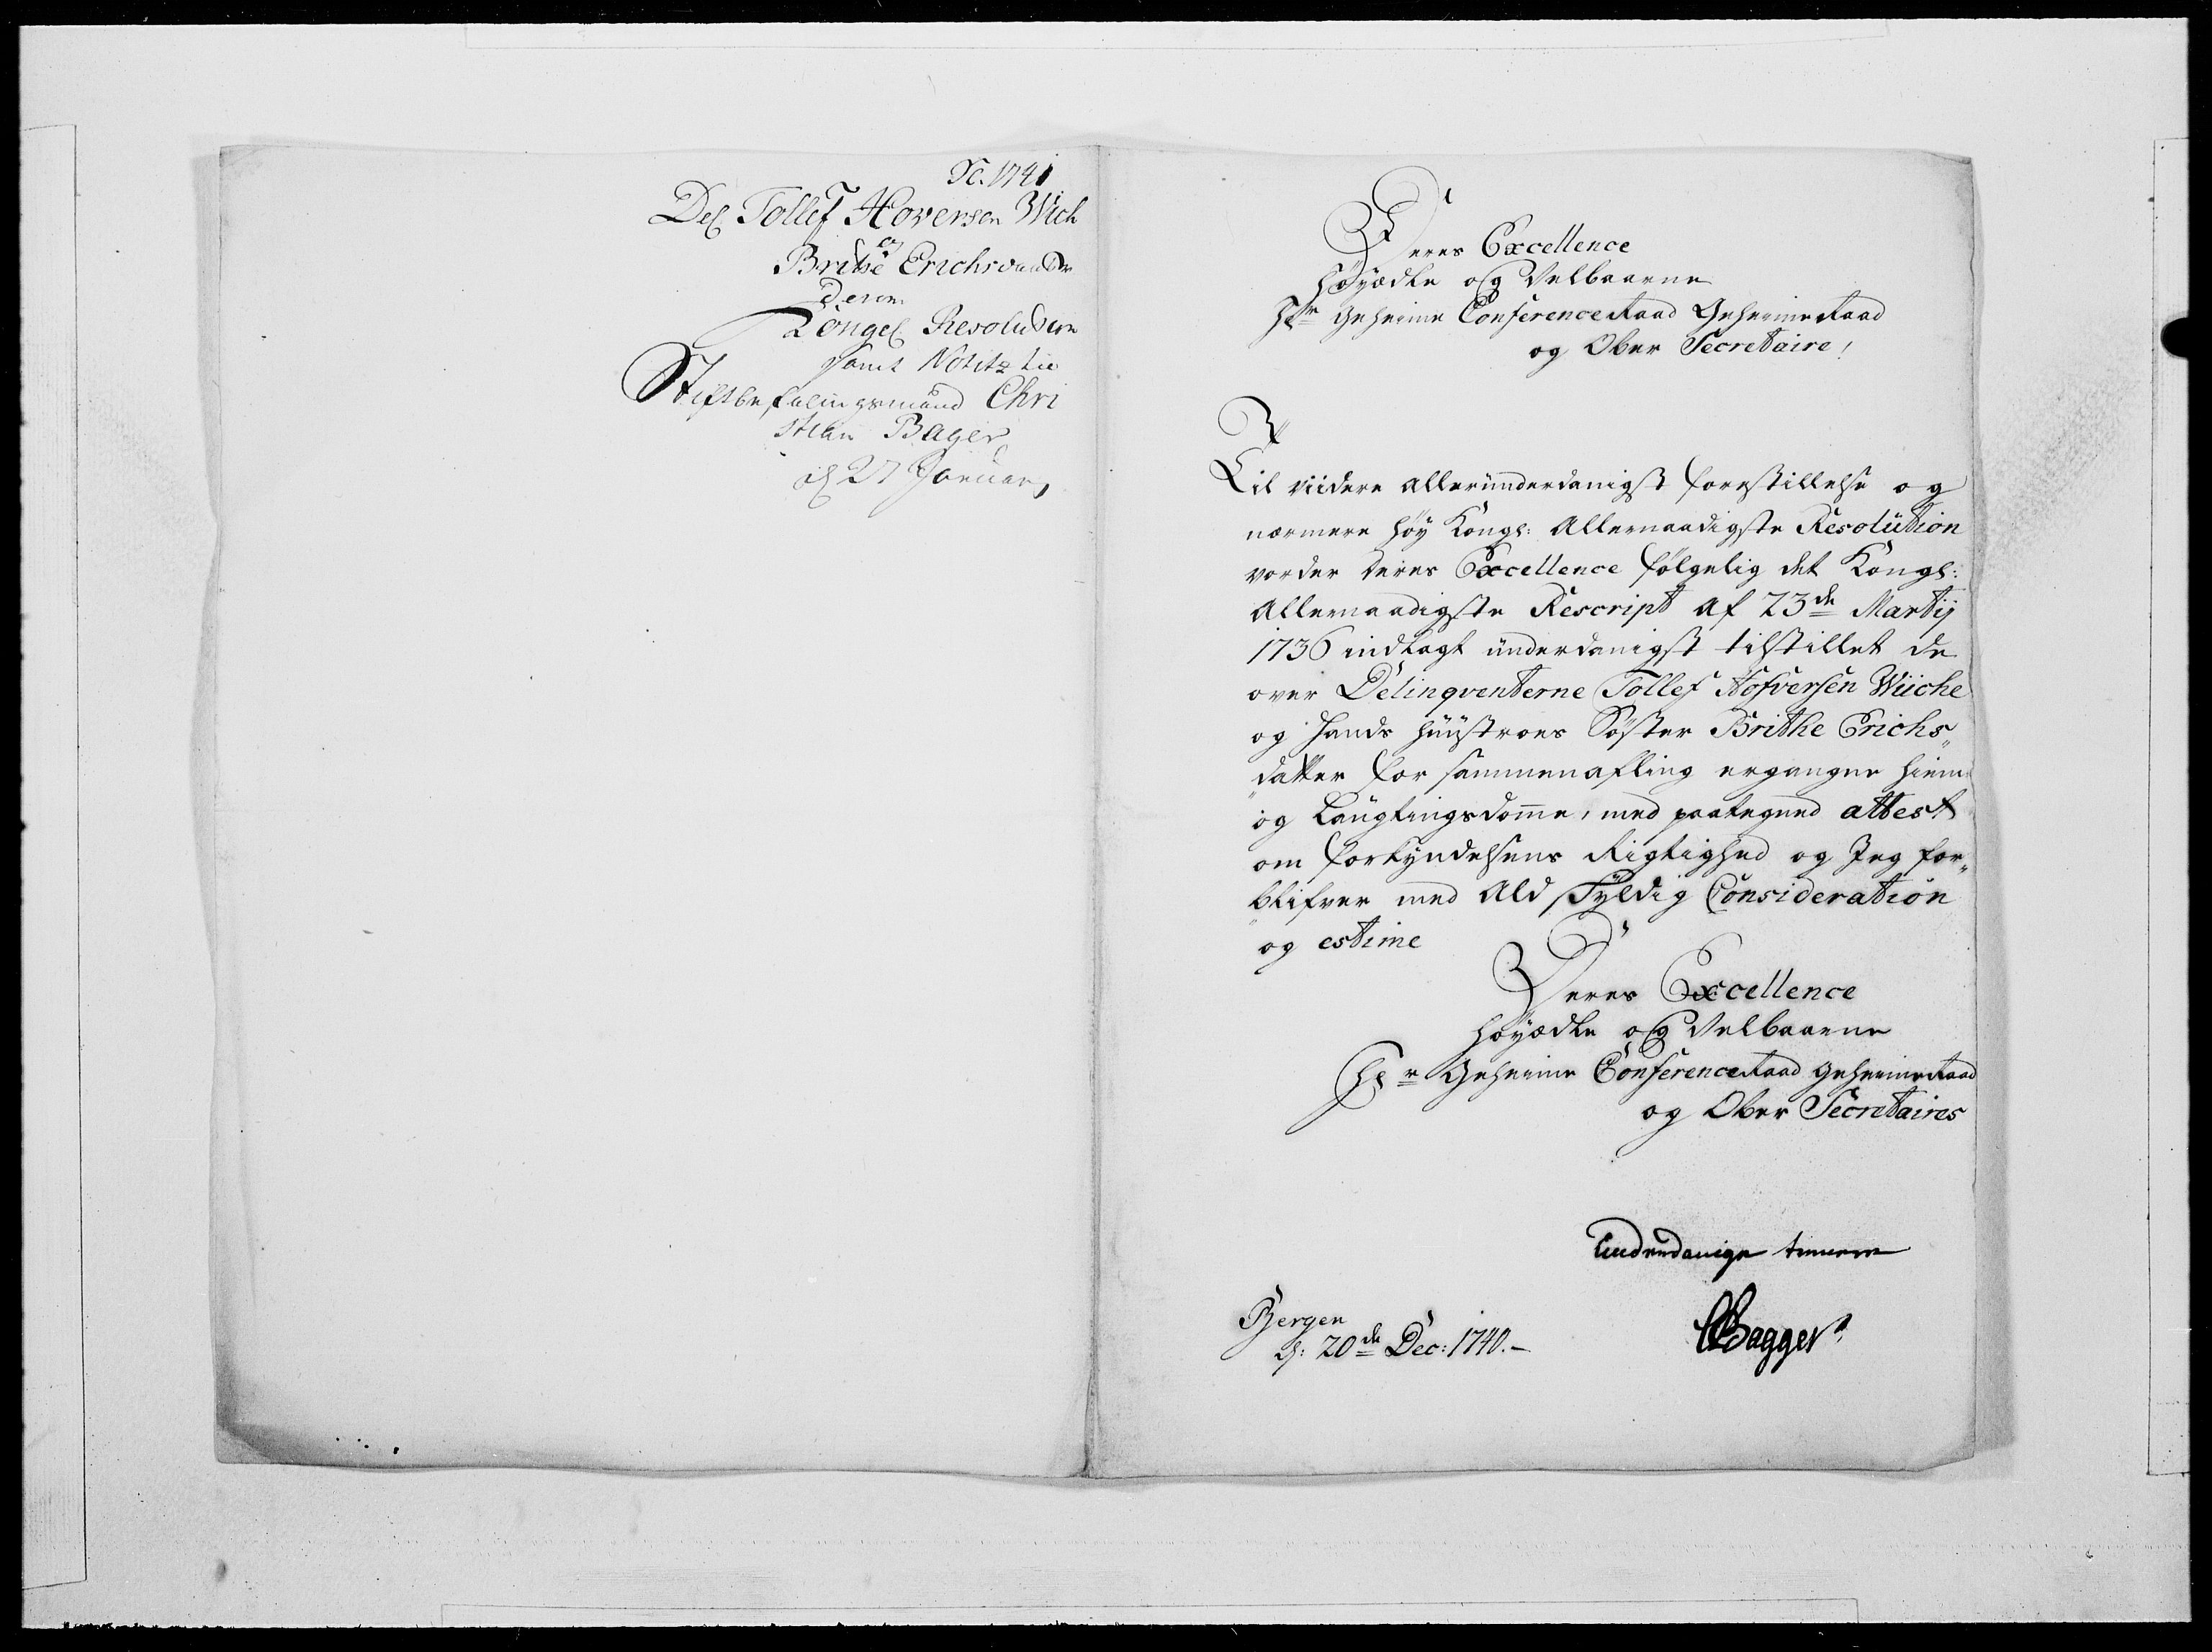 1741
Del Tollef Hoversen Wich
og
Brithe Erichsdaatter
deres
Kongel Resolution
samt Notitz til
Stiftbefalingsmand Chri
stian Bager
d 27 Januar
Deres Excellence
Høyædle og Velbaarne
Hr Geheime Conference Raad Geheime Raad
og Ober Secretaire!
Til viidere allerunderdanigst forestillelse og
nærmere høy Kongl: Allernaadigste Resolution
vorder deres Excellence følgelig det Kongl:
Allernaadigste Rescript af 23de Martij
1736 indlagt underdanigst tilstillet de
over Delinqventerne Tollef Hofversen Wiiche
og Hands Huustroes Søster Brithe Erichs„
datter for sammenafling ergangne Hiem„
og Laugtingsdomme, med paategned attest
om forkyndelsens Rigtighed og Jeg for„
blifver med Ald skyldig Consideration
og estime
Deres Excellence
Høyædle og Velbaarne
Hr Geheime Conference Raad Geheime Raad
og Ober Secretaires
Underdanige tienere
Bergen
d: 20de Dec: 1740.-
CBagger